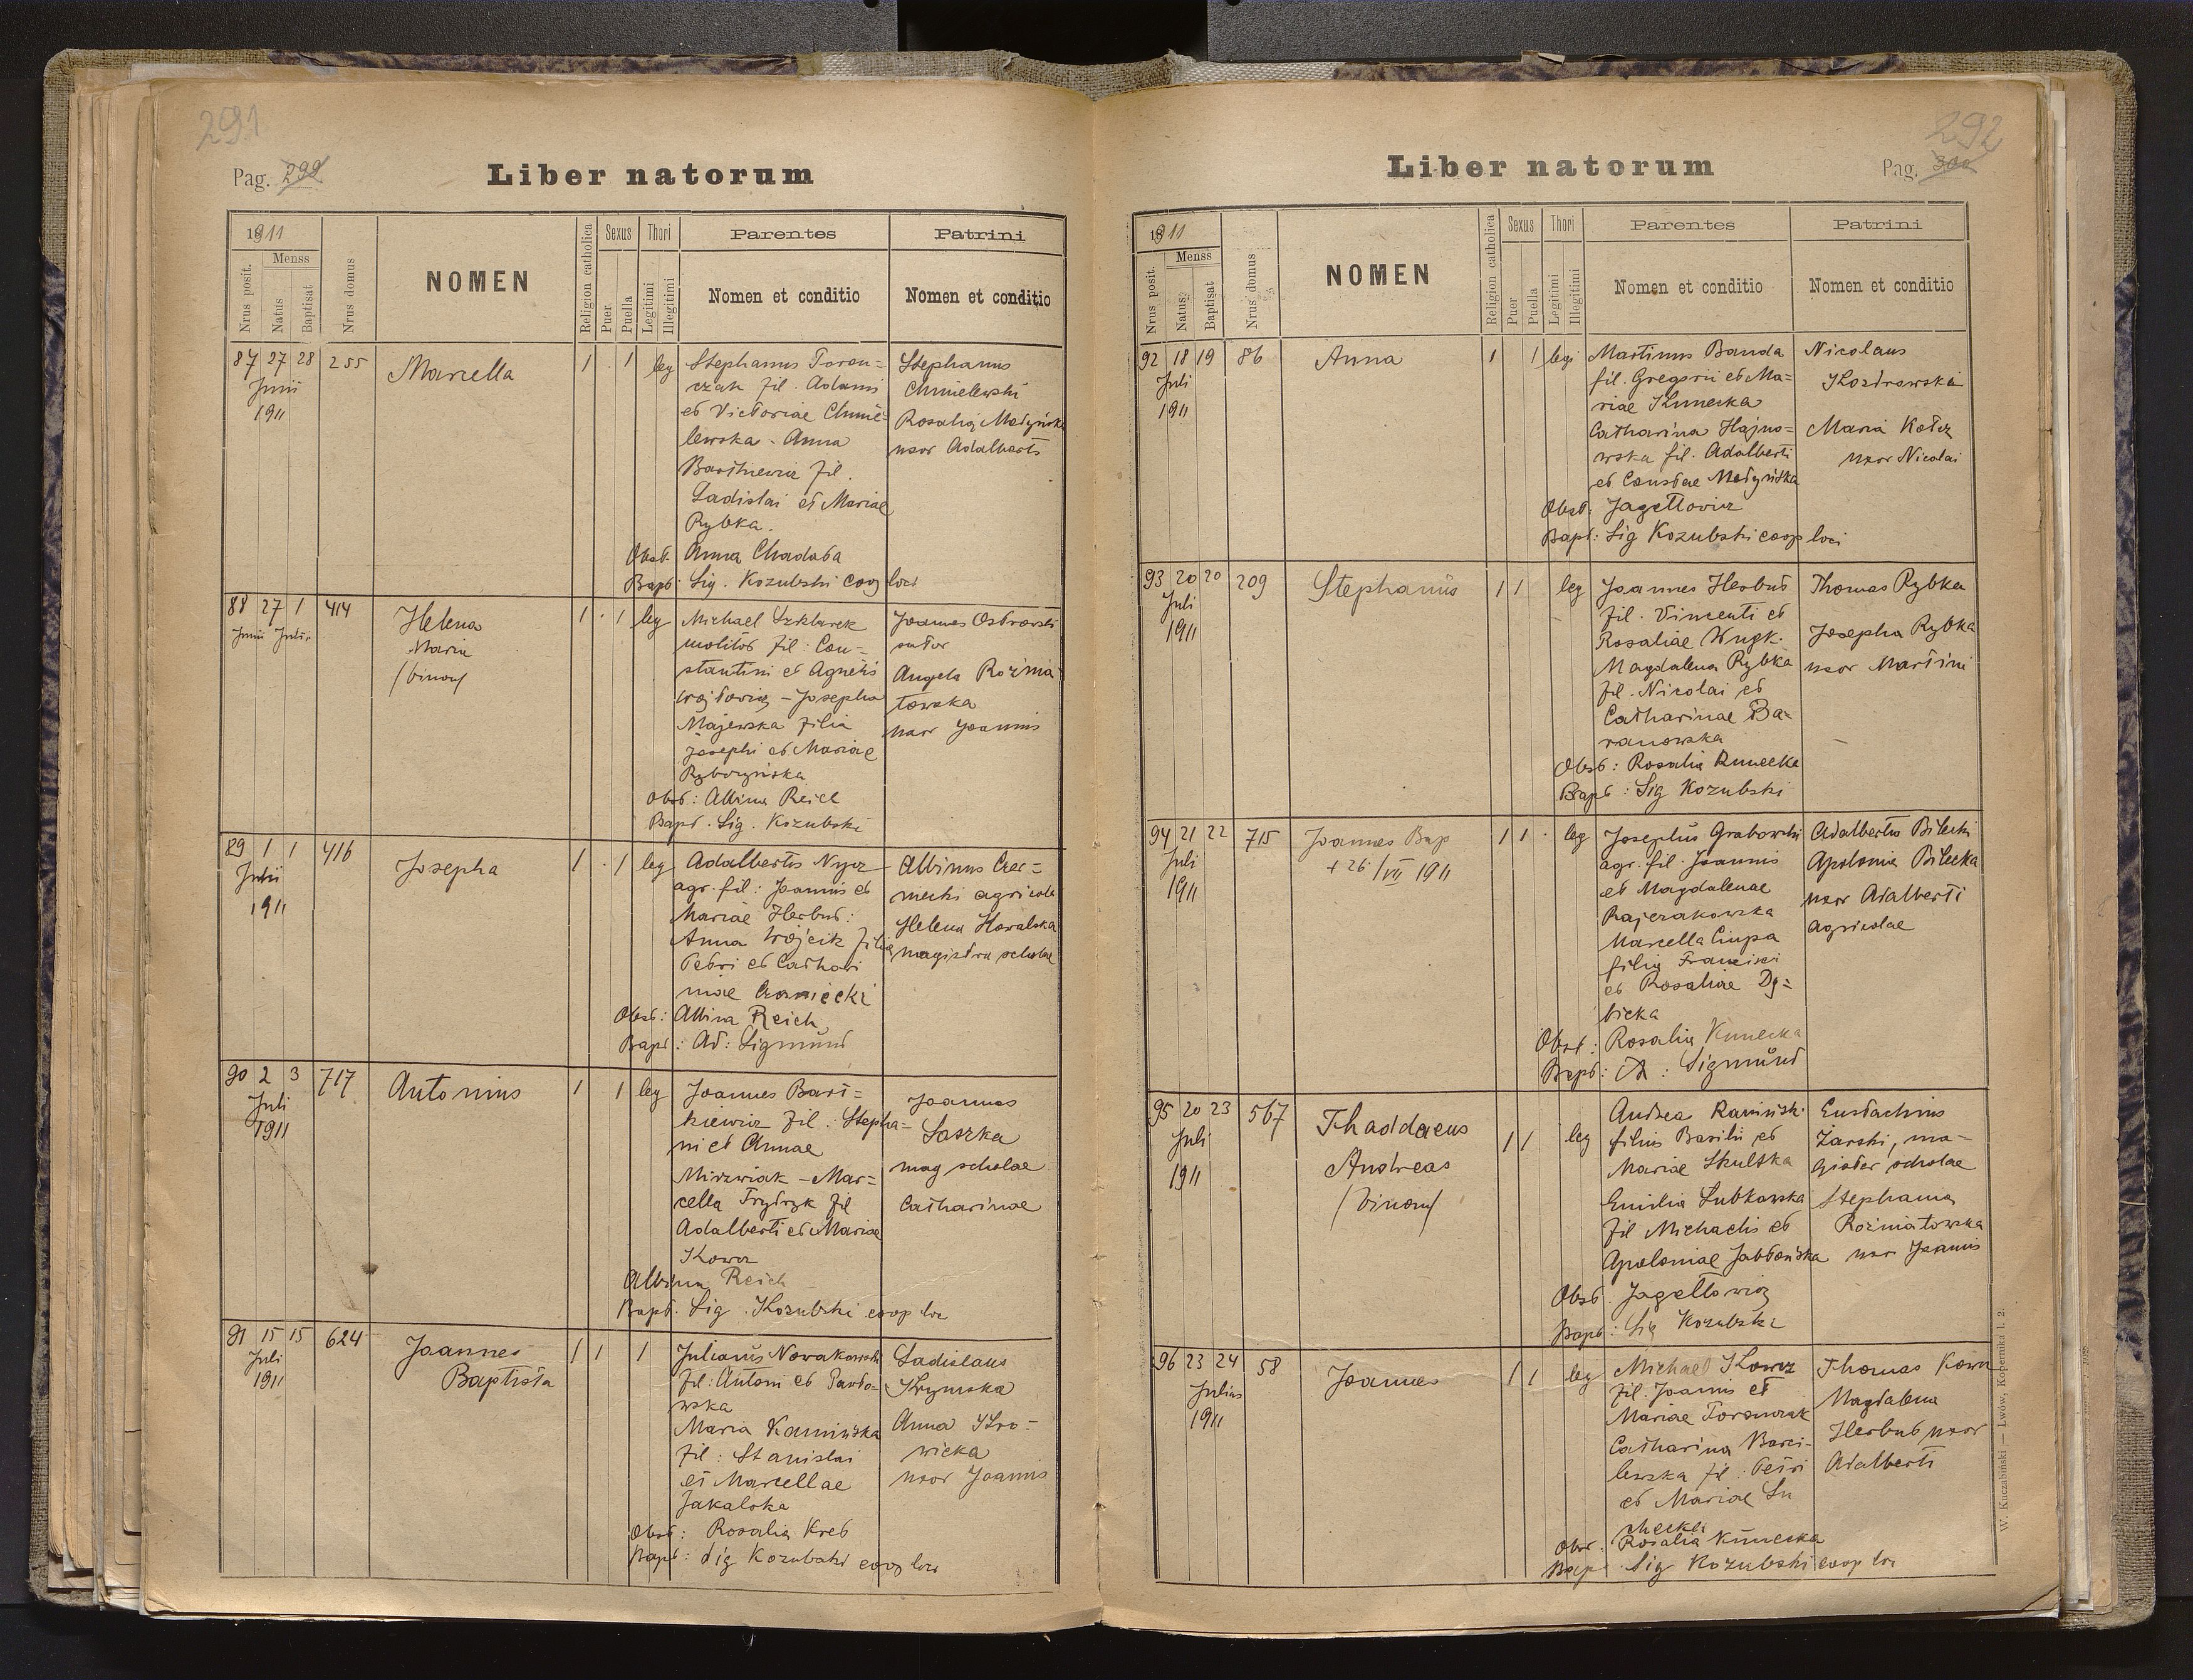 291
Pag. 299
Liber natorum
1911
Nrus posit.
Menss
Natus
Baptisat
Nrus domus
NOMEN
Religion catholica
Sexus
Puer
Puella
Thori
Legitimi
Illegitimi
Parentes
Nomen et conditio
Patrini
Nomen et conditio
87 27 28 255 Marcella 1 . 1 leg
Junii
1911
Stephanus Toron=
czak fil. Adami
et Victoriae Chmie=
lewska - Anna
Bartkiewicz fil.
Ladislai et Mariae
Rybka.
Obst. Anna Chadaba
Bapt: Sig. Kozubski coop loci
Stephanus
Chmielewski
Rosalia Medyńska
uxor Adalberti
88 27 1 414 Helena 1 . 1 leg
Junii Julii
Maria
/binom/
Michael Szklarek
molitor fil: Con-
stantini et Agnetis
Wojtowicz - Josepha
Majewska filia
Josephi et Mariae
Ryboryńska
Obst: Albina Reich
Bapt. Sig. Kozubski
Joannes Ostrowski
sutor
Angela Rożnia
towska
uxor Joannis
89 1 1 416 Josepha 1 . 1 leg
Julii
1911
Adalbertus Nycz
agr. fil: Joannis et
Mariae Herbut:
Anna Wójcik filia
Petri et Cathari
nae Czarniecki
Obst: Albina Reich
Bapt: Ad: Sigmund
Albinus Czar=
niecki agricola
Helena Kowalska
magistra scholae
90 2 3 717 Antonius 1 1 leg
Juli
1911
Joannes Bart=
kiewicz fil. Stepha=
ni et Annae
Mirzwiak - Mar=
cella Trydryk fil
Adalberti et Mariae
Kowcz
Albina Reich
Bapt. Sig. Kozubski coop loci
Joannes
Saszka
mag scholae
Catharinae
91 15 15 624 Joannes 1 1 1
Juli
1911
Baptista
Julianus Nowakowski
fil: Antoni et Pawło=
wska
Maria Kamińska
fil: Stanislai
et Marcellae
Jakalska
Obst: Rosalia Kret
Bapt: Sig Kozubski coop loci
Ladislaus
Krymska
Anna Kro=
wicka
uxor Joannis
292
Liber natorum
Pag. 300
1911
Nrus posit.
Menss
Natus
Baptisat
Nrus domus
NOMEN
Religion catholica
Sexus
Puer
Puella
Thori
Legitimi
Illegitimi
Parentes
Nomen et conditio
Patrini
Nomen et conditio
92 18 19 86 Anna 1 1 legi
Juli
1911
Martinus Banda
fil. Gregorii et Ma=
riae Kunecka
Catharina Hajno=
wska fil. Adalberti
et Constae Medyńska
Obst: Jagełłowicz
Bapt: Sig Kozubski coop loci
Nicolaus
Kozdrowski
Maria Kołcz
uxor Nicolai
93 20 20 209 Stephanus 1 1 leg
Juli
1911
Joannes Herbut
fil. Vincenti et
Rosaliae Wnęk.
Magdalena Rybka
fil. Nicolai et
Catharinae Ba=
ranowska
Obst: Rosalia Kunecka
Bapt: Sig Kozubski
Thomas Rybka
Josepha Rybka
uxor Martini
94 21 22 715 Joannes Bap 1 1 . leg
Juli
1911
+ 26/VII 1911
Josephus Grabowski
agr. fil. Joannis
et Magdalenae
Rajczakowska
Marcella Ciupa
filia Francisci
et Rosaliae Dę=
bicka
Obst: Rosalia Kunecka
Bapt: A: Sigmund
Adalbertus Bilecki
Apolonia Bilecka
uxor Adalberti
agricolae
95 20 23 567 Thaddaeus 1 1 leg
Juli
1911
Andreas
/binom/
Andrea Kamiński
filius Basilii et
Mariae Skulska
Emilia Łubkowska
fil Michaelis et
Apoloniae Jabłońska
Obst. Jagełłowicz
Bapt: Sig Kozubski
Eustachius
Żarski, ma-
gister scholae
Stephania
Rożniatowska
uxor Joannis
96 23 24 58 Joannes 1 1 leg
Julius
1911
Michael Kowcz
fil. Joannis et
Mariae Toronczak
Catharina Barci-
lewska fil: Petri
et Mariae Su
checka
Obst. Rosalia Kunecka
Bapt Sig Kozubski coop loci
Thomas Kown
Magdalena
Herbut uxor
Adalberti
W. Kuczabiński — Lwów, Kopernika l. 2.